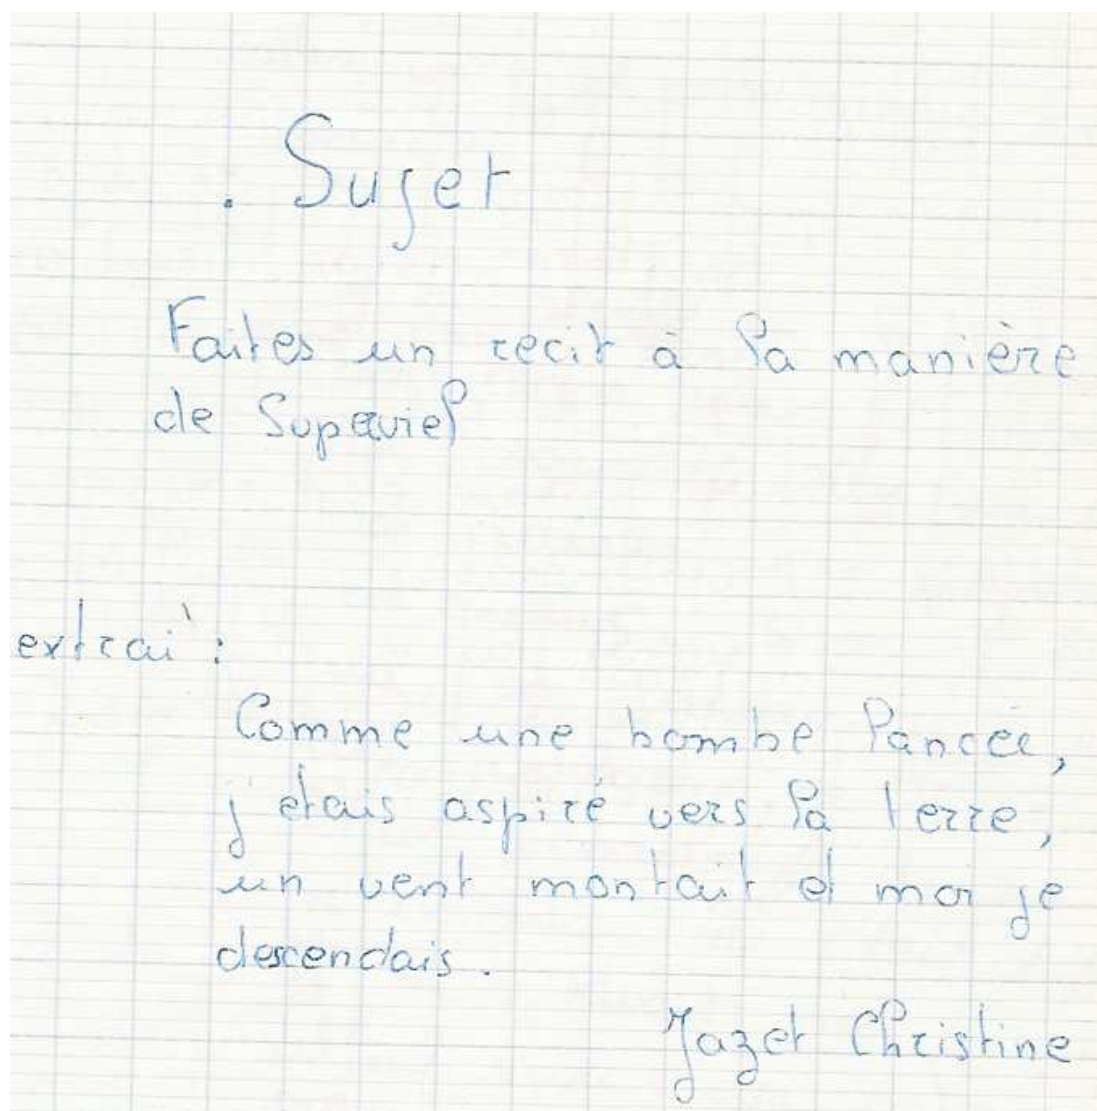 . Sujet
Faites un recit à la manière
de Superviel
extrai :
Comme une bombe lancée,
j etais aspiré vers la terre,
un vent montait et moi je
descendais.
Jazet Christine